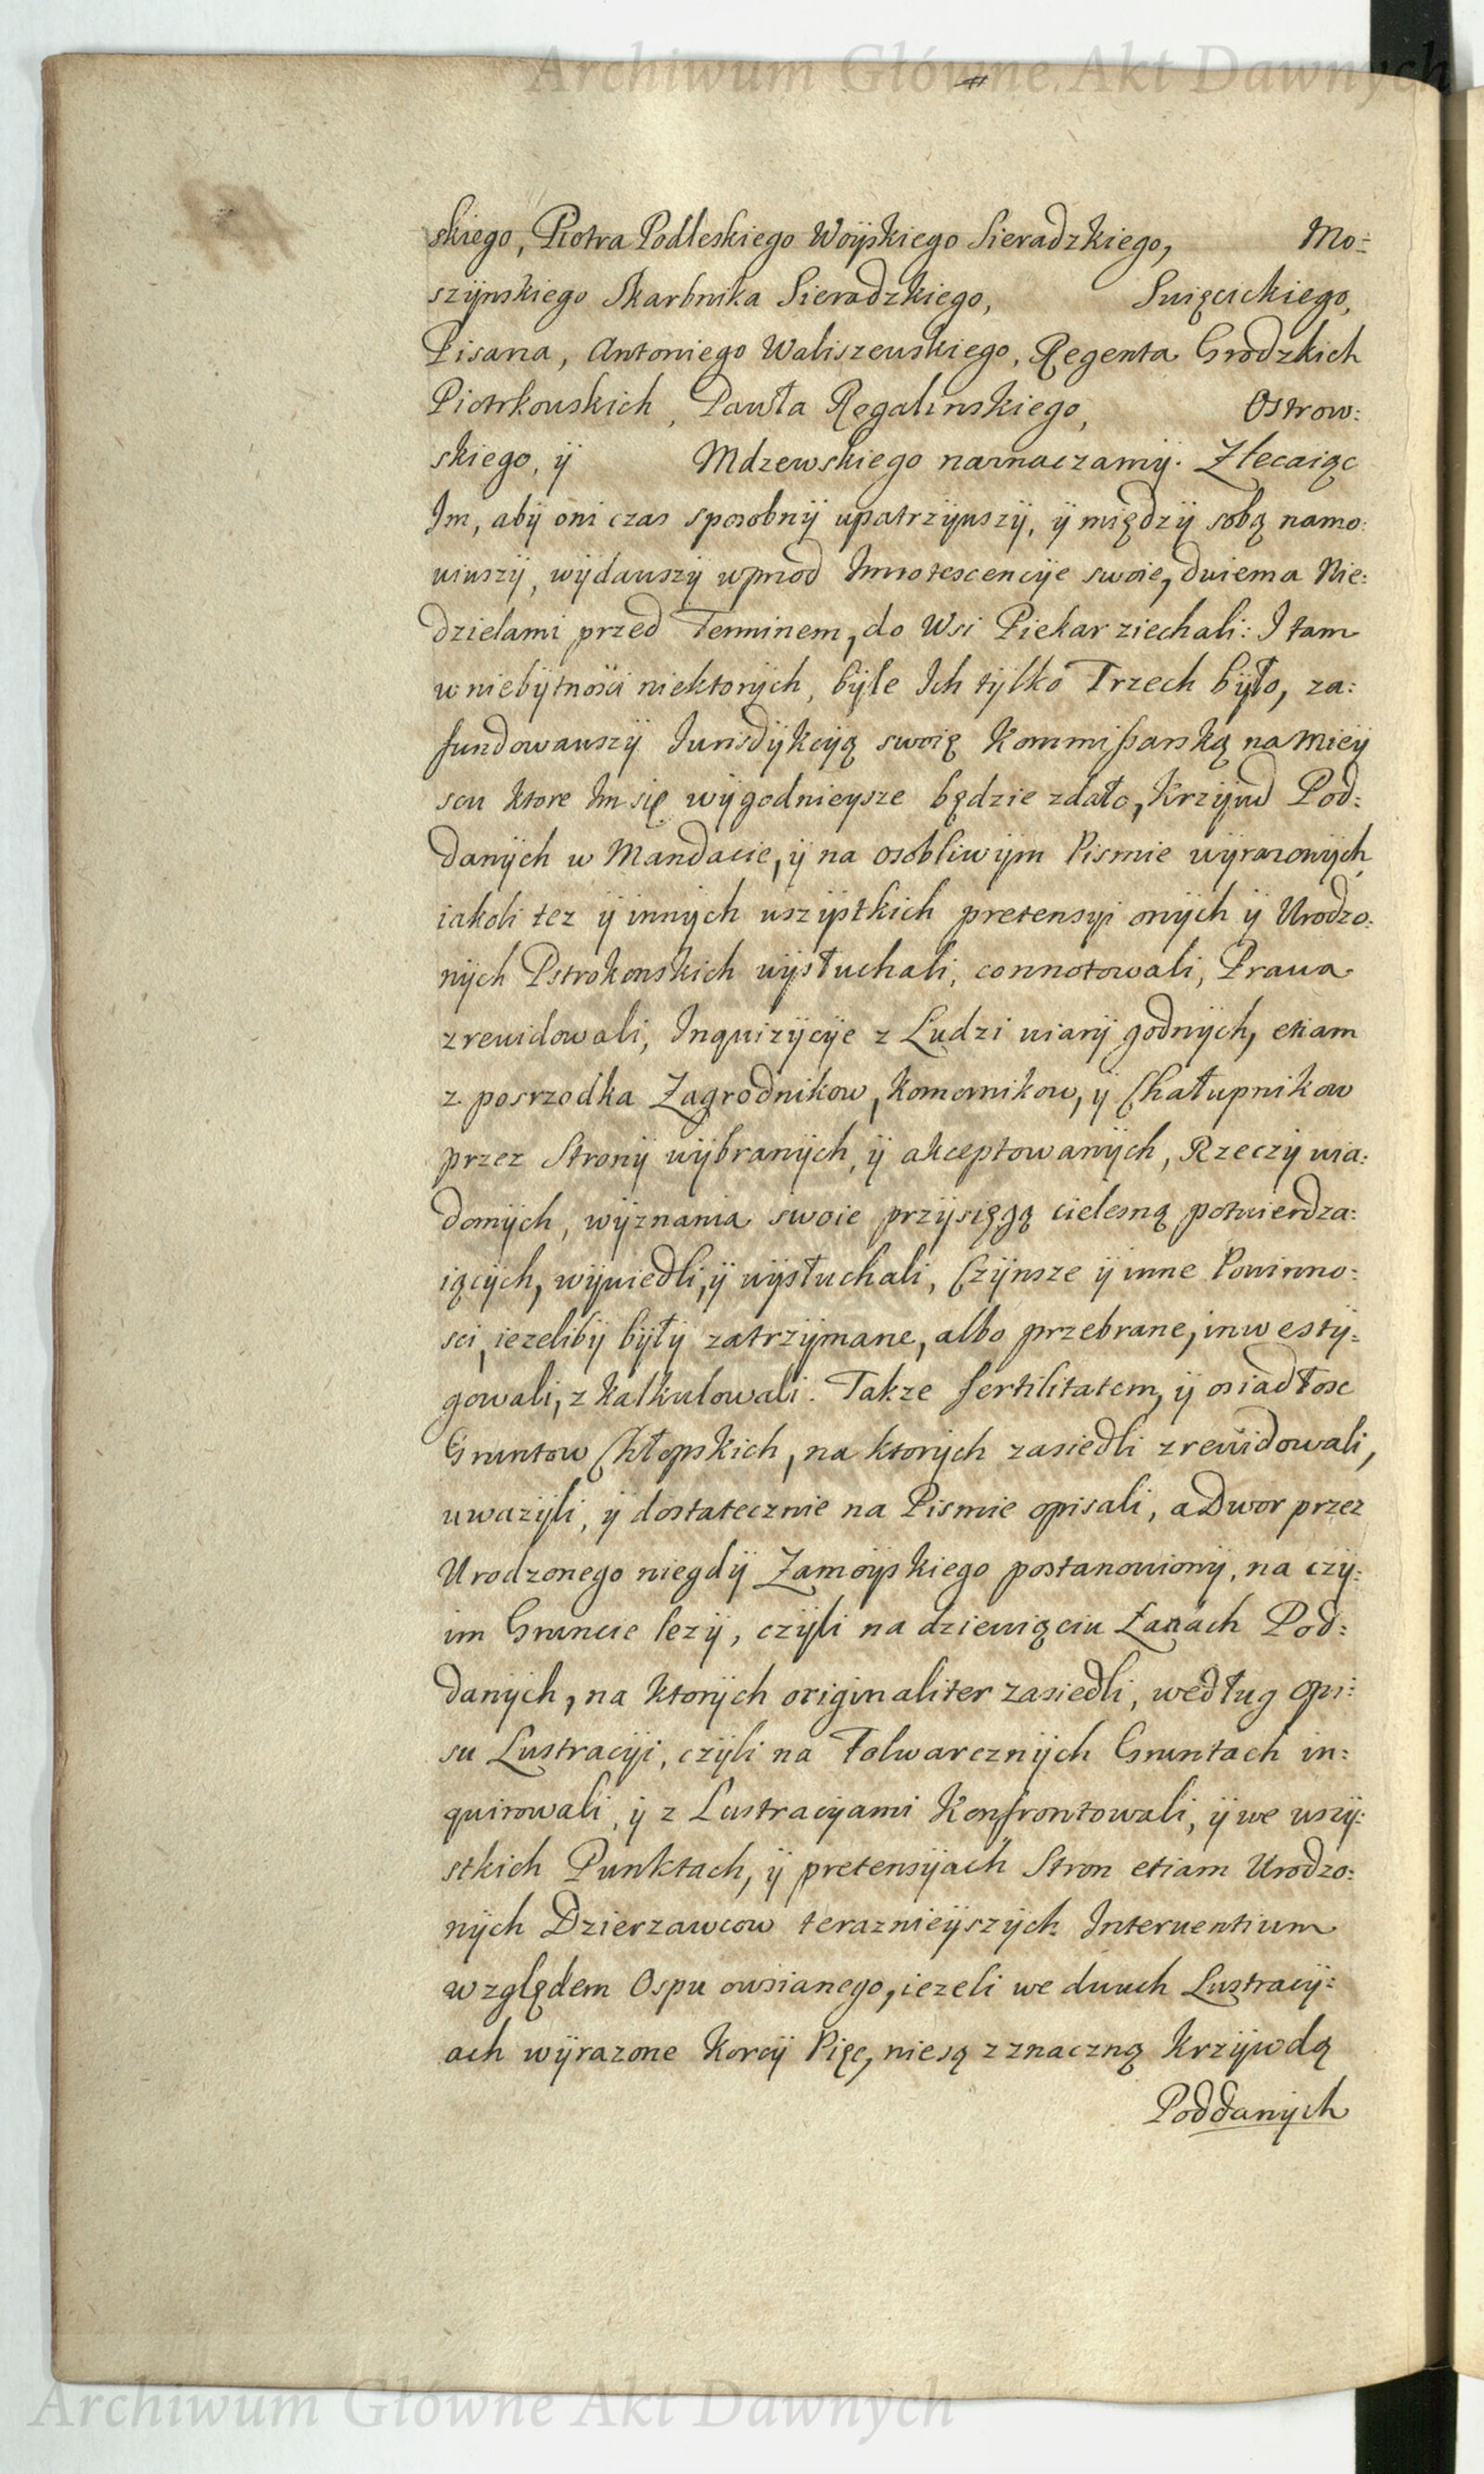 Archiwum Główne Akt Dawnych
skiego, Piotra Podleskiego Woÿskiego Sieradzkiego, Mo=
szÿnskiego Skarbnika Sieradzkiego, Swięcickiego,
Pisarza, Antoniego Waliszewskiego, Regenta Grodzkich
Piotrkowskich, Pawła Ręgalinskiego, Ostrow:
skiego, ÿ Mdzewskiego naznaczamÿ. Zlecaiąc
Im, abÿ oni czas sposobnÿ upatrzÿwszÿ, ÿ międzÿ sobą namo:
wiwszÿ, wÿdawszÿ wprzod Innotescencÿe swoie, dwiema Nie:
dzielami przed Terminem, do Wsi Piekar ziechali: I tam
w niebÿtności niektorÿch, bÿle Ich tÿlko Trzech bÿło, za:
fundowawszÿ Jurisdÿkcÿą swoię Kommißarską na Mieÿ
scu ktore Im się wÿgodnieysze będzie zdało, Krzÿwd Pod:
danÿch w Mandacie, ÿ na osobliwÿm Pismie wÿrazonÿch,
iakoli tez ÿ innÿch wszÿstkich pretensÿi onÿch ÿ Urodzo:
nÿch Pstrokonskich wÿsłuchali, connotowali, Prawa
zrewidowali, Inquizÿcÿe z Ludzi wiarÿ godnÿch, etiam
z posrzodka Zagrodnikow, Komornikow, ÿ Chałupnikow
przez Stronÿ wÿbranÿch, ÿ akceptowanÿch, Rzeczÿ wia:
domÿch, wÿznania swoie przÿsięgą cielesną potwierdza:
iącÿch, wÿwiedli, ÿ wÿsłuchali, Czÿnsze ÿ inne Powinno:
sci, iezelibÿ bÿłÿ zatrzÿmane, albo przebrane, inwestÿ:
gowali, z kalkulowali. Takze fertilitatem, ÿ osiadłosc
Gruntow Chłopskich, na ktorÿch zasiedli zrewidowali,
uwazÿli, ÿ dostatecznie na Pismie opisali, a Dwor przez
Urodzonego niegdÿ Zamoÿskiego postanowionÿ, na czÿ:
im Gruncie lezÿ, czÿli na dziewięciu Łanach Pod:
danÿch, na ktorÿch originaliter zasiedli, według opi:
su Lustracÿi, czÿli na Folwarcznÿch Gruntach in:
quirowali, ÿ z Lustracÿami Konfrontowali, ÿ we wszÿ:
stkich Punktach, ÿ pretensÿach Stron etiam Urodzo:
nÿch Dzierzawcow teraznieÿszÿch Interuentium
względem Ospu owsianego, iezeli we dwuch Lustracÿ:
ach wÿrazone Korcÿ Pięc, niesą z znaczną Krzÿwdą
Poddanÿch
Archiwum Główne Akt Dawnych